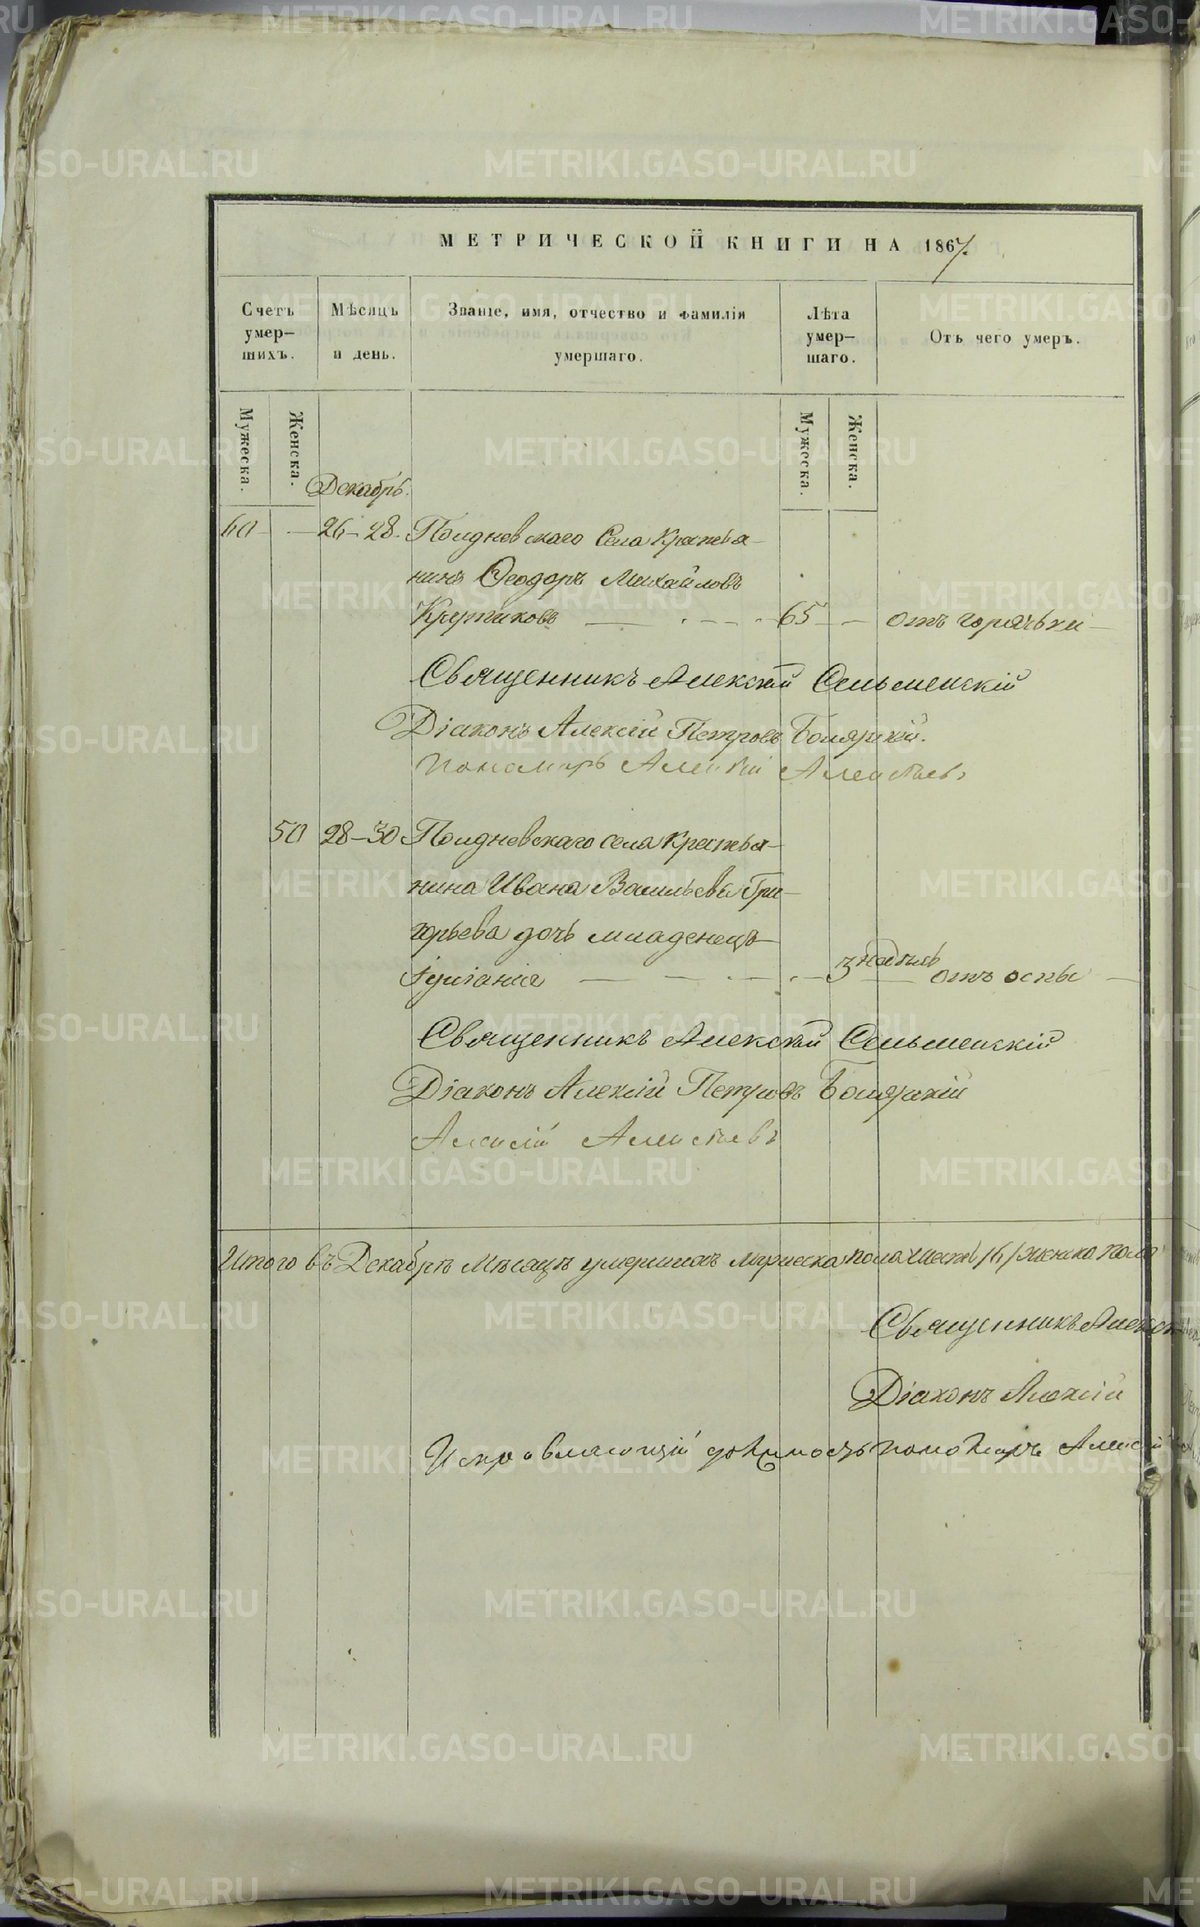 МЕТРИЧЕСКОЙ КНИГИ НА 1867.
Счетъ умер- шихъ.
Мѣсяцъ и день.
Званіе, имя, отчество и фамилія умершаго.
Лѣта умер- шаго.
Отъ чего умеръ.
Мужеска.
Женска.
Мужеска.
Женска.
Декабрь.
60 — 26-28. Полдневскаго Села Крестья-
нинъ Ѳеодоръ Михайловъ
Крутиковъ 65 — отъ горячьки
Священникъ Алексій Сельменскій
Діаконъ Алексій Петровъ Боярскій.
Пономарь Алексій Алексѣевъ
50 28-30 Полдневскаго села Крестья-
нина Ивана Васильева Гри-
горьева дочь младенецъ
Іуліанія 3 недѣль отъ оспы
Священникъ Алексій Сельменскій
Діаконъ Алексій Петровъ Боярскій
Алексій Алексѣевъ
Итого въ Декабрѣ Мѣсяцѣ умершихъ мужеска пола шесть /6/ женско пола
Священникъ Алексѣ
Діаконъ Алексій
Исправляющій должность пономаръ Алексій
METRIKI.GASO-URAL.RU